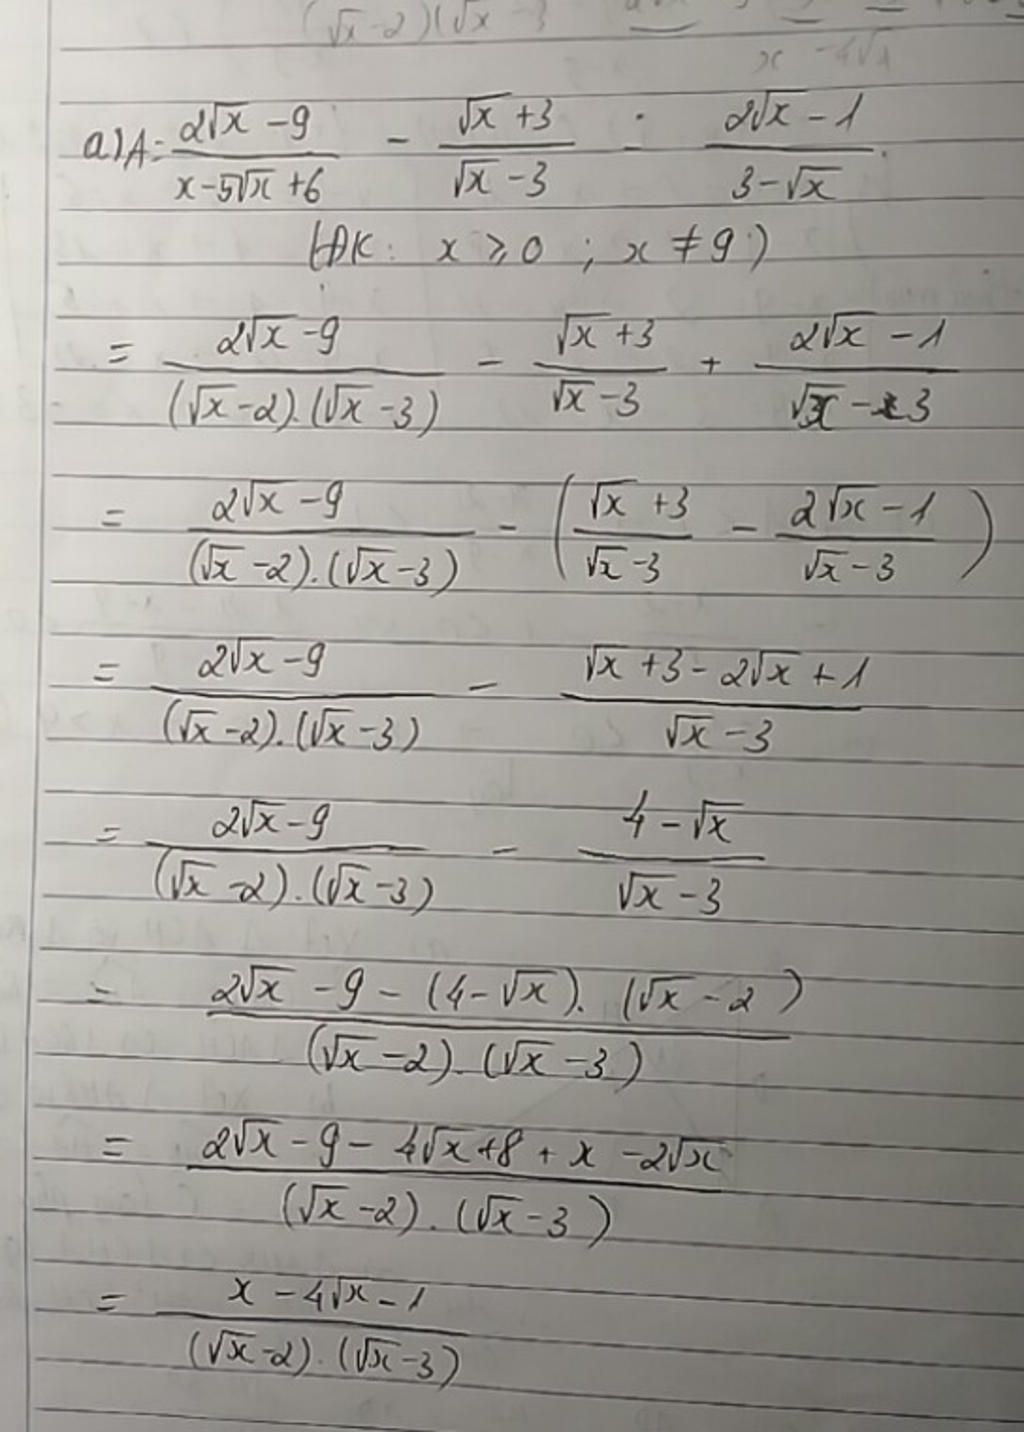 (√x-2)(√x-3
x-4√x
a) A = (2√x - 9)/(x - 5√x + 6) - (√x + 3)/(√x - 3) - (2√x - 1)/(3 - √x)
(ĐK: x ≥ 0 ; x ≠ 9)
= (2√x - 9)/((√x - 2).(√x - 3)) - (√x + 3)/(√x - 3) + (2√x - 1)/(√x - 3)
= (2√x - 9)/((√x - 2).(√x - 3)) - ((√x + 3)/(√x - 3) - (2√x - 1)/(√x - 3))
= (2√x - 9)/((√x - 2).(√x - 3)) - (√x + 3 - 2√x + 1)/(√x - 3)
= (2√x - 9)/((√x - 2).(√x - 3)) - (4 - √x)/(√x - 3)
= (2√x - 9 - (4 - √x).(√x - 2))/((√x - 2).(√x - 3))
= (2√x - 9 - 4√x + 8 + x - 2√x)/((√x - 2).(√x - 3))
= (x - 4√x - 1)/((√x - 2).(√x - 3))